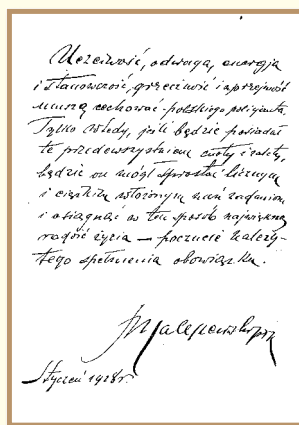 Uczciwość, odwaga, energja
i stanowczość, grzeczność i uprzejmość
muszą cechować polskiego policjanta.
Tylko wtedy, jeśli będzie posiadał
te przedewszystkiem cnoty i zalety,
będzie on mógł sprostać licznym
i ciężkim włożonym nań zadaniom
i osiągnąć w ten sposób największą
radość życia — poczucie należy-
tego spełnienia obowiązku.
Styczeń 1928 r.